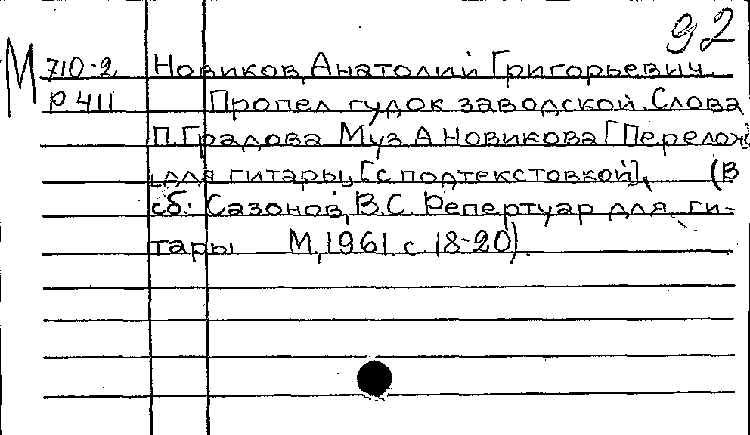 92
М 710-2 Новиков, Анатолий Григорьевич.
Р 411 Пропел гудок заводской. Слова
П. Градова Муз А Новикова [Перелож
для гитары, [с подтекстовкой], (В
сб: Сазонов, В.С. Репертуар для ги-
тары М, 1961. с. 18-20).